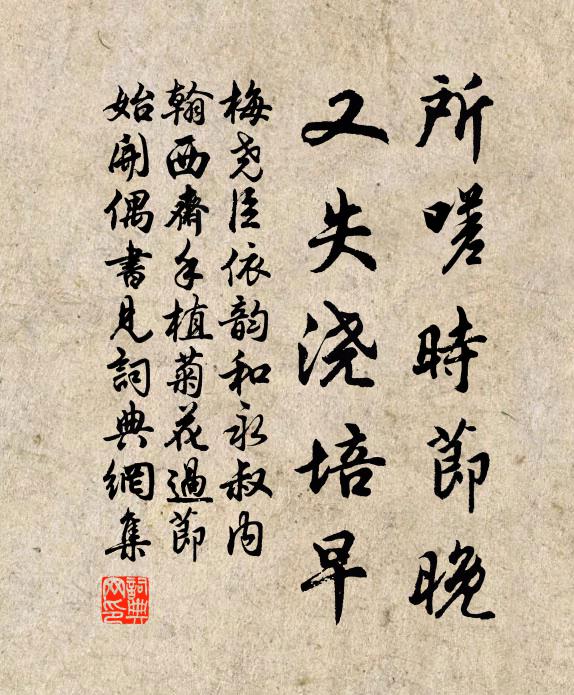 所嗟時節晚
又失浇培早
梅尧臣依韵和永叔内
翰西齋手植菊花過節
始開偶書見詞典網集
詞典网印